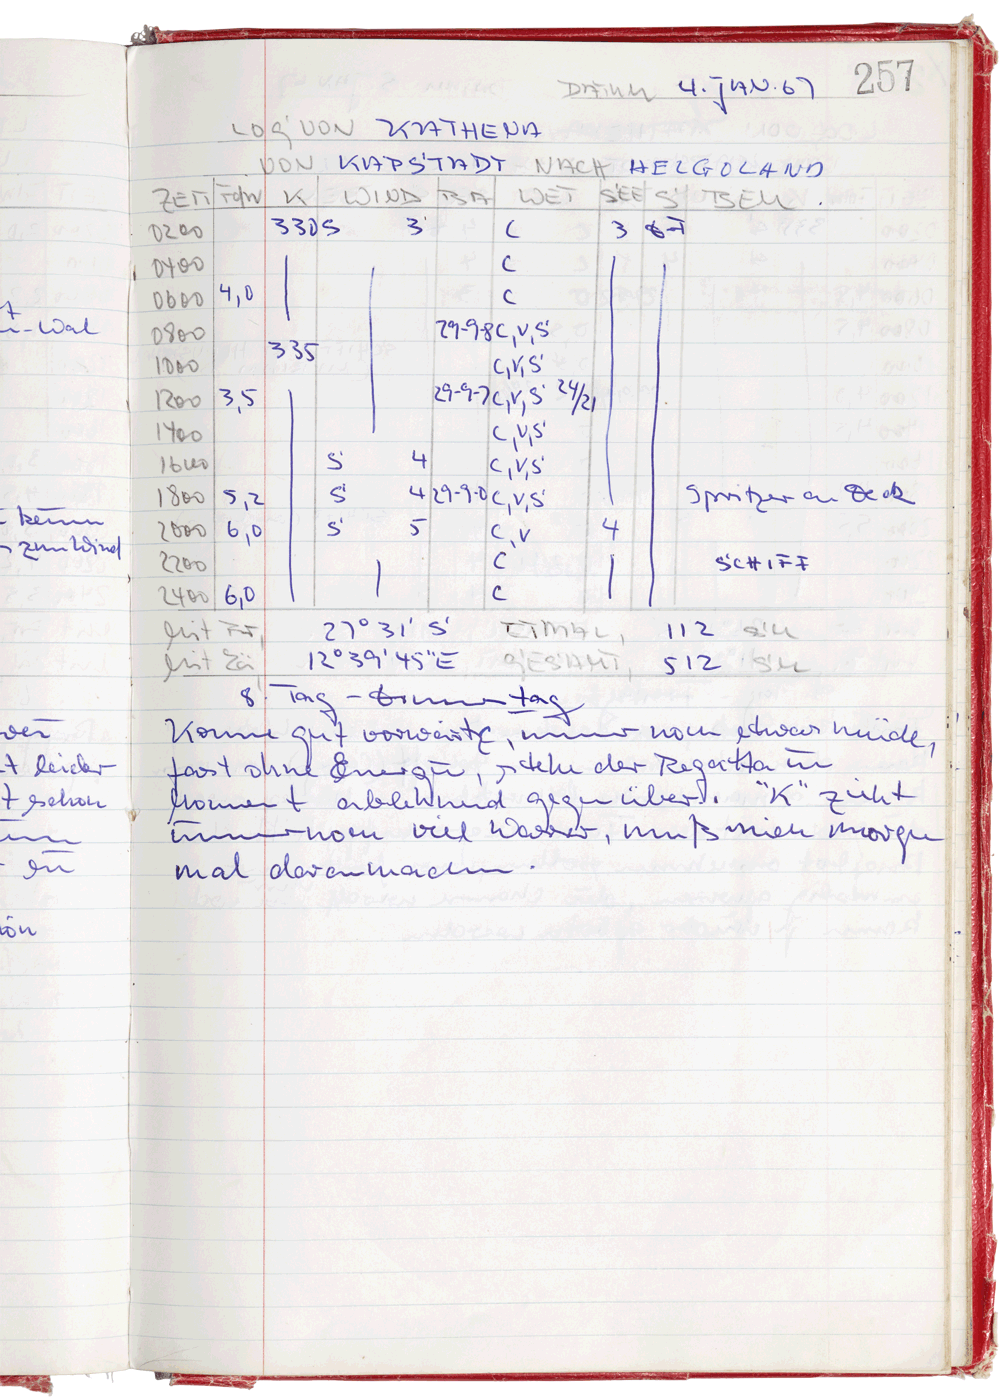 DATUM 4. JAN. 67 257
LOG VON KATHENA
VON KAPSTADT NACH HELGOLAND
ZEIT FdW K WIND BA WET SEE S BEM.
0200 330 S 3 C 3 F
0400 C
0600 4,0 C
0800 29-9-8 C,V,S
1000 335 C,V,S
1200 3,5 29-9-7 C,V,S 24/21
1400 C,V,S
1600 S 4 C,V,S
1800 5,2 S 4 29-9-0 C,V,S Spritzer an Deck
2000 6,0 S 5 C,V 4
2200 C SCHIFF
2400 6,0 C
Mit 27° 31' S ETMAL, 112 SM
Mit 12° 39' 45" E GESAMT, 512 SM
8. Tag – Donnerstag
Komme gut vorwärts, immer noch etwas müde,
fast ohne Energie, stehe der Regatta im
Moment ablehnend gegenüber. "K" zieht
immer noch viel Wasser, muß mich morgen
mal daranmachen.
-Wal
zum Wind
leider
schon